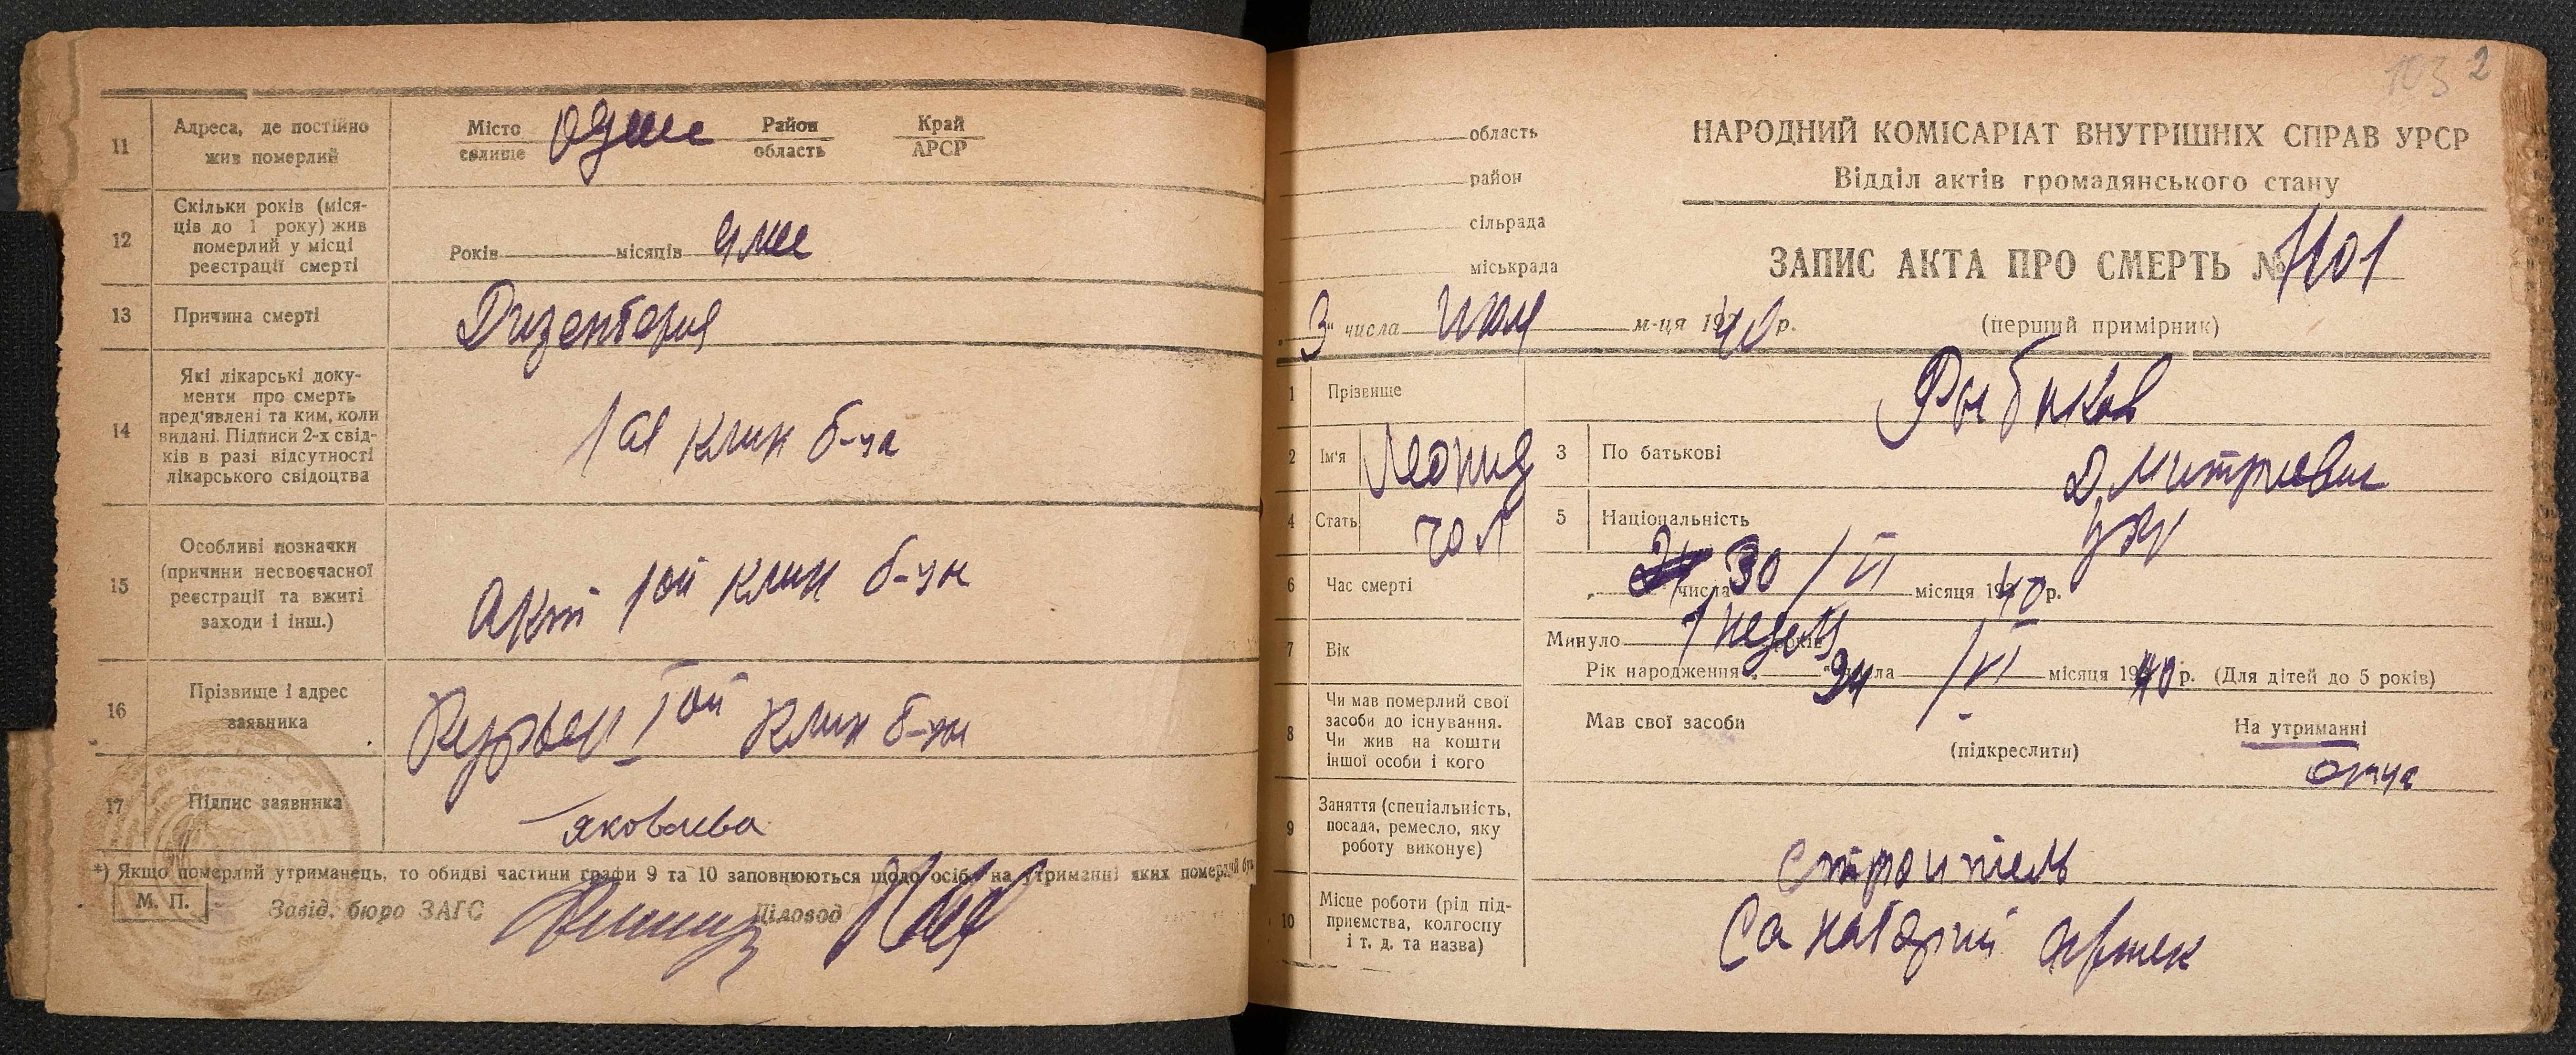 11
Адреса, де постійно
жив померлий
Місто
селище
Район
область
Край
АРСР
12
Скільки років (міся-
ців до 1 року) жив
померлий у місці
реєстрації смерті
Років
місяців
13
Причина смерті
Дизентерия
14
Які лікарські доку-
менти про смерть
пред'явлені та ким, коли
видані. Підписи 2-х свід-
ків в разі відсутності
лікарського свідоцтва
1ая клин б-ца
15
Особливі позначки
(причини несвоєчасної
реєстрації та вжиті
заходи і інш.)
Акт 1ой клин б-цы
16
Прізвище і адрес
заявника
Курьер 1ой клин б-цы
17
Підпис заявника
Яковлева
*) Якщо померлий утриманець, то обидві частини графи 9 та 10 заповнюються щодо осіб, на утриманні яких померлий був
М. П.
Завід. бюро ЗАГС
Діловод
103 2
область
район
сільрада
міськрада
НАРОДНИЙ КОМІСАРІАТ ВНУТРІШНІХ СПРАВ УРСР
Відділ актів громадянського стану
ЗАПИС АКТА ПРО СМЕРТЬ № 1101
„3" числа июля м-ця 1940 р.
(перший примірник)
1 Прізвище
2 Ім'я Леонид
3 По батькові Дмитриевич
4 Стать чол
5 Національність укр
6 Час смерті 30 числа /VI місяця 1940 р.
7 Вік
Минуло 1 неделя років
Рік народження 24 числа /VI місяця 1940 р. (Для дітей до 5 років)
8
Чи мав померлий свої
засоби до існування.
Чи жив на кошти
іншої особи і кого
Мав свої засоби
(підкреслити)
На утриманні
отца
9
Заняття (спеціальність,
посада, ремесло, яку
роботу виконує)
строитель
10
Місце роботи (рід під-
приємства, колгоспу
і т. д. та назва)
Санаторий Артек